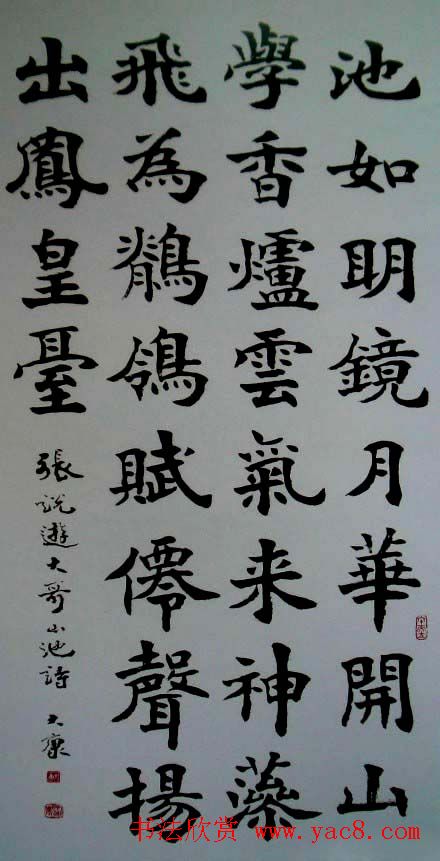 池如明鏡月華開山
學香爐雲氣来神藻
飛為鶺鴒賦僊聲揚
出鳳皇臺
張說遊大哥山池詩 大康
书法欣赏 www.yac8.com